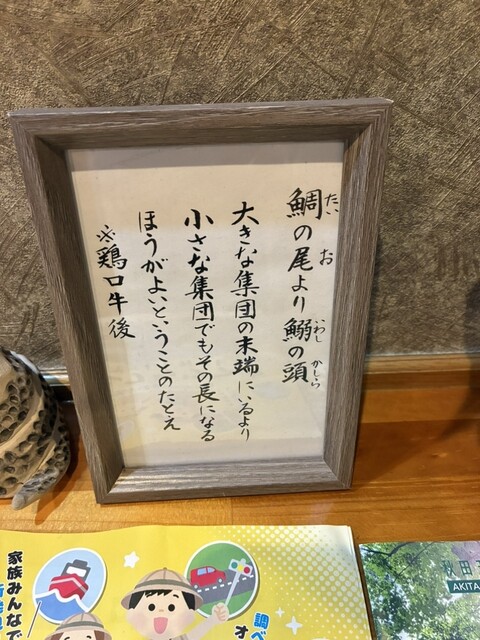 鯛の尾より鰯の頭
たい
お
いわし
かしら
大きな集団の末端にいるより
小さな集団でもその長になる
ほうがよいということのたとえ
※鶏口牛後
家族みんなで
調べ
オ
秋田
AKITA